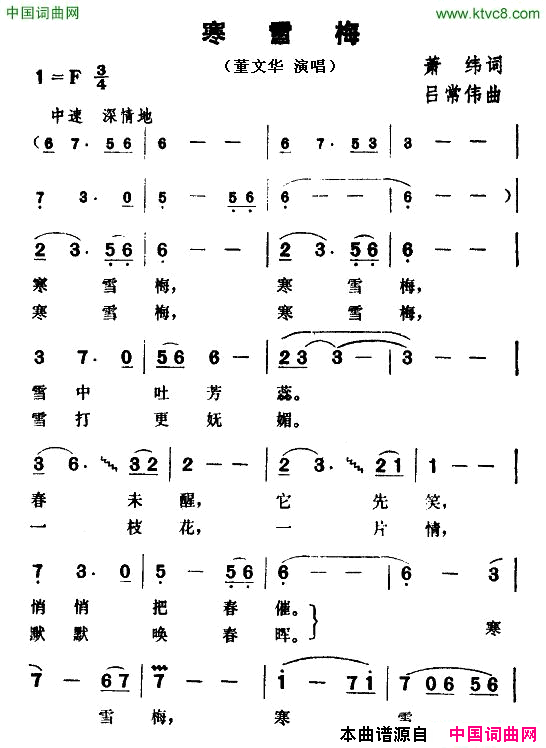 中国词曲网 www.ktvc8.com
寒雪梅
（董文华 演唱）
1=F 3/4
萧纬词
吕常伟曲
中速 深情地
（6 7· 56 | 6 - - | 6 7· 53 | 3 - - |
7 3· 0 | 5 - 56 | 6 - - | 6 - -）|
2 3· 56 | 6 - - | 2 3· 56 | 6 - - |
寒雪梅， 寒雪梅，
寒雪梅， 寒雪梅，
3 7· 0 | 56 6 - | 23 3 - | 3 - - |
雪中吐芳蕊。
雪打更妩媚。
3 6· 32 | 2 - - | 2 3· 21 | 1 - - |
春未醒， 它先笑，
一枝花， 一片情，
7 3· 0 | 5 - 56 | 6 - - | 6 - 3 |
悄悄把春催。
默默唤春晖。 寒
7 - 67 | 7 - - | i - 7i | 7 06 56 |
雪梅， 寒雪
本曲谱源自 中国词曲网